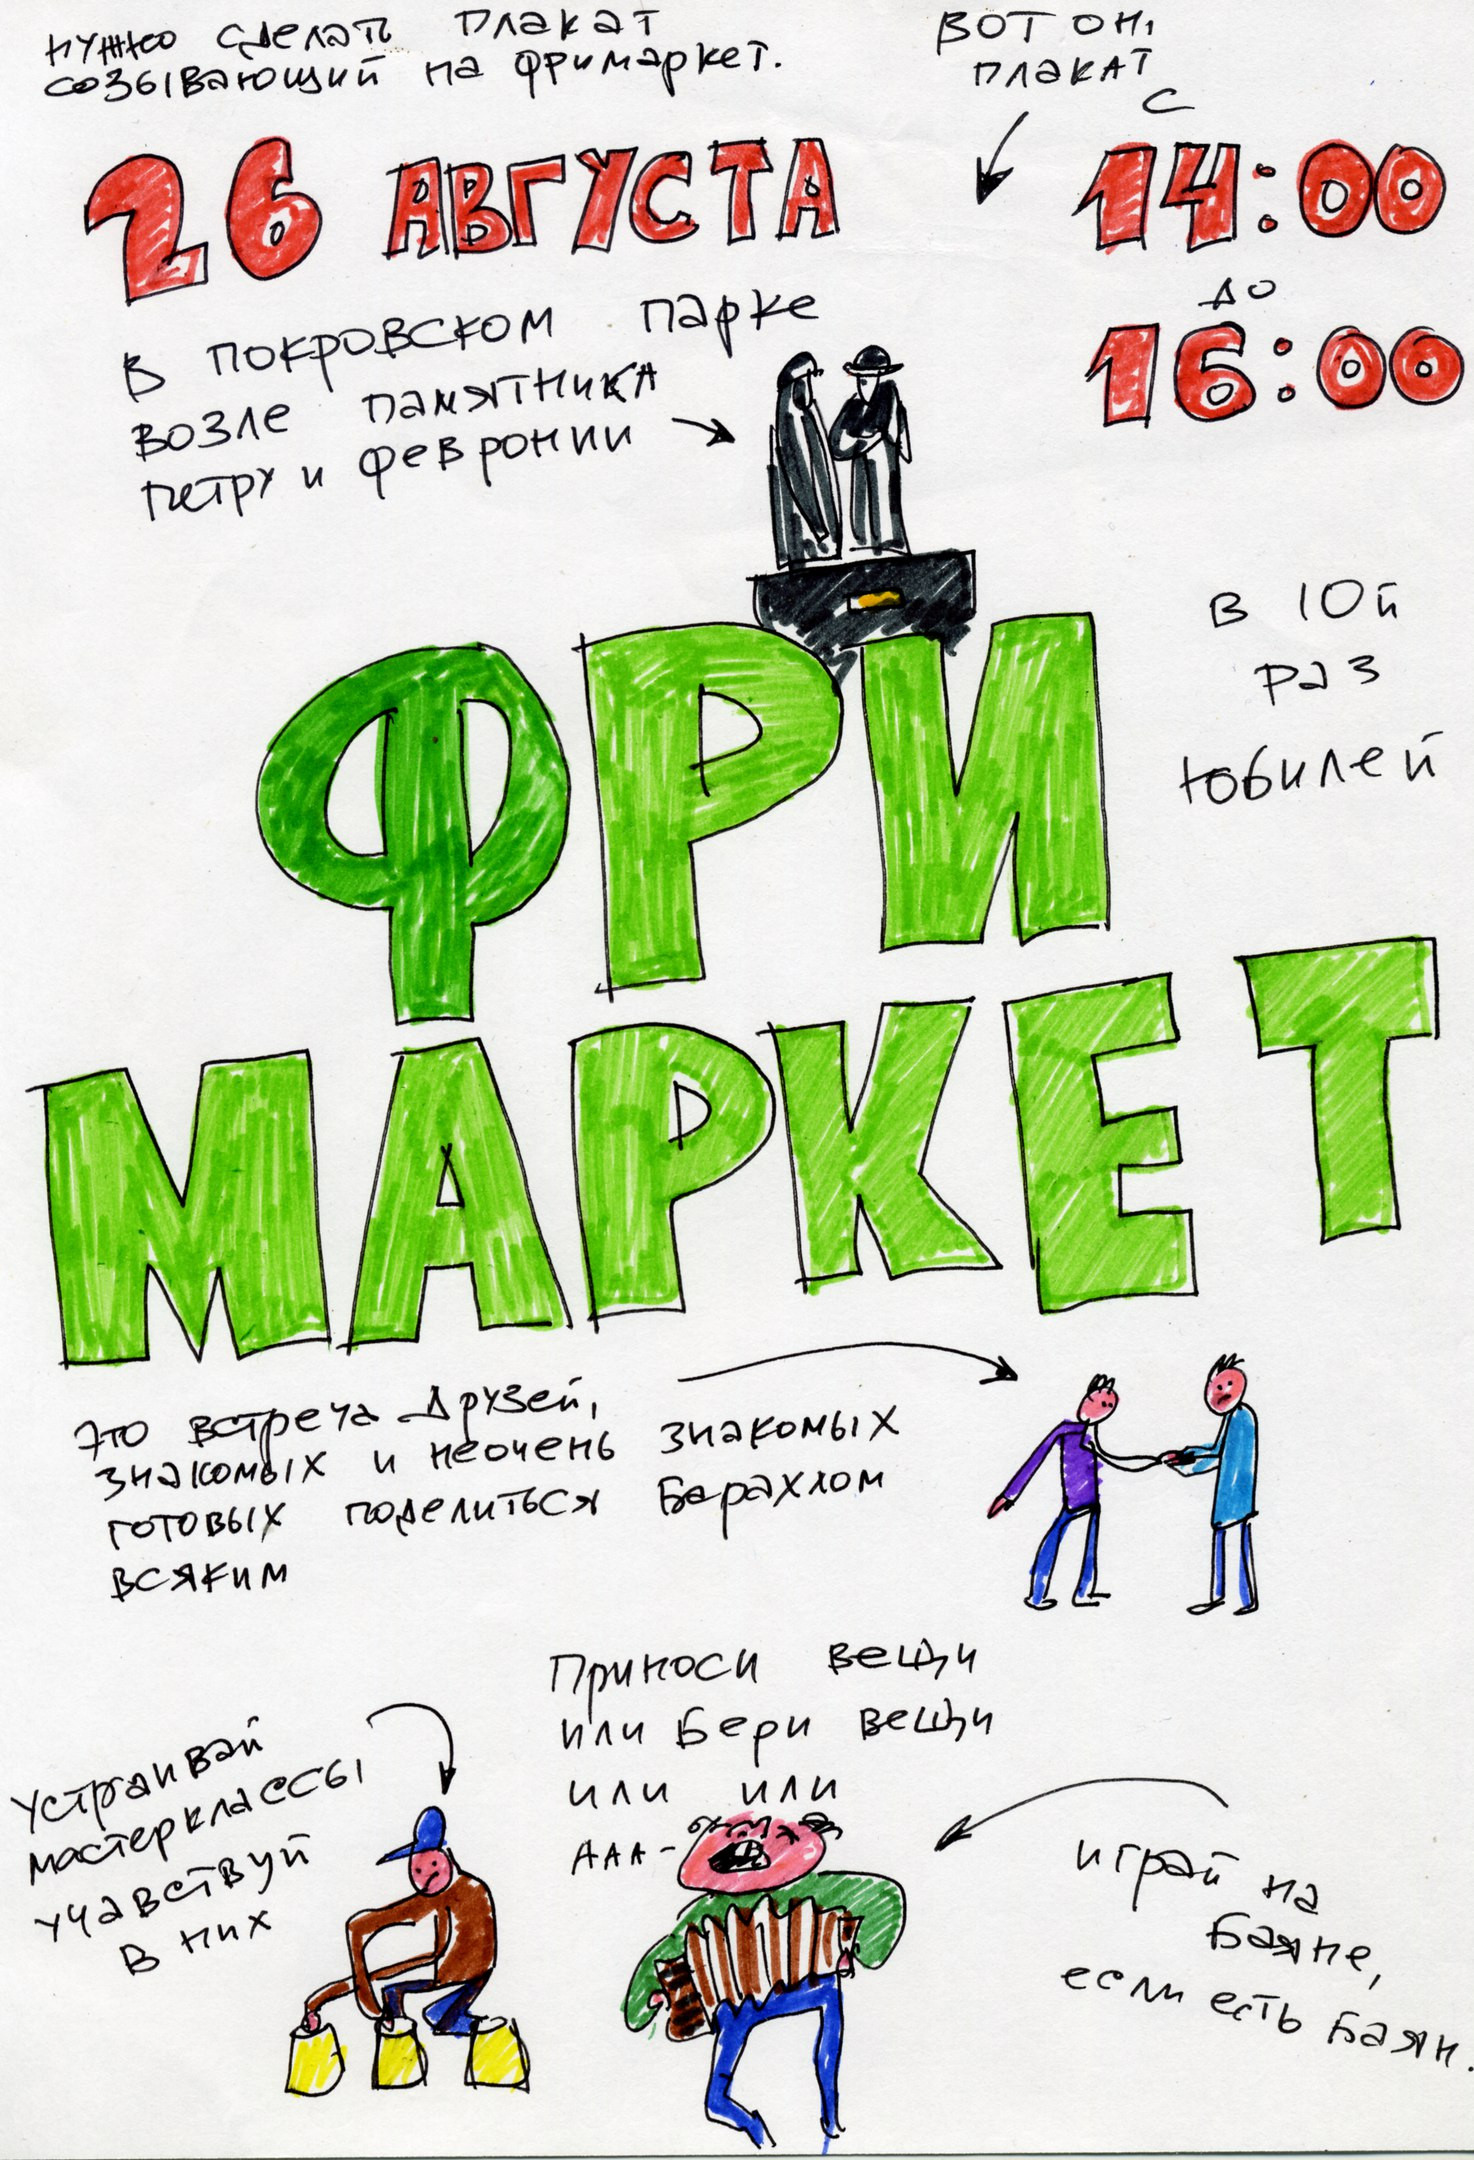 нужно сделать плакат
созывающий на фримаркет.
вот он,
плакат
26 АВГУСТА
с
14:00
до
16:00
в покровском парке
возле памятника
петру и февронии
в 10й
раз
юбилей
ФРИ
МАРКЕТ
это встреча друзей,
знакомых и неочень знакомых
готовых поделиться барахлом
всяким
Приноси вещи
или бери вещи
или или
ААА-
устраивай
мастерклассы
учавствуй
в них
играй на
баяне,
если есть баян.